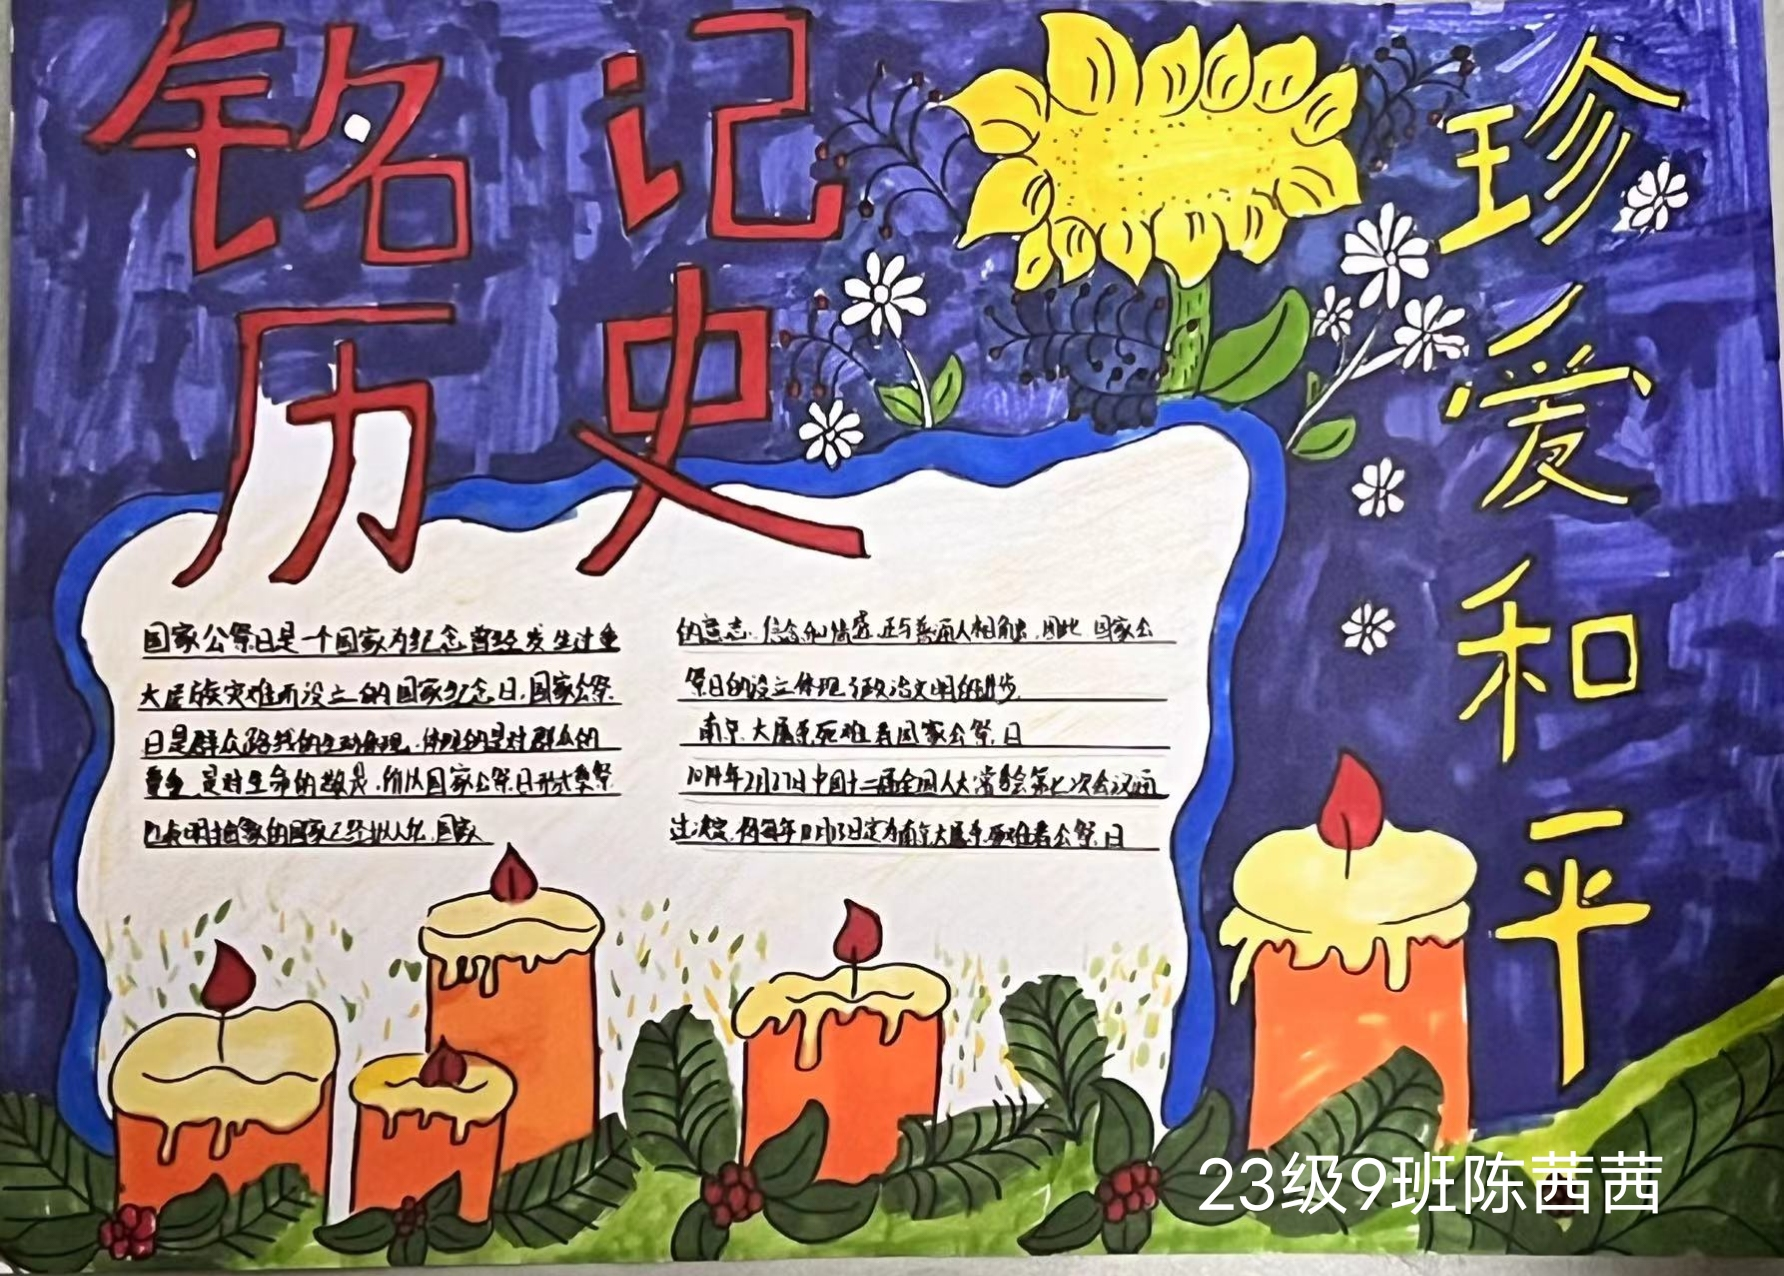 铭记
历史
珍爱和平
国家公祭日是一个国家为纪念曾经发生过重
大民族灾难而设立的国家纪念日,国家公祭
日是群众路线的生动体现,体现的是对群众的
重, 是对生命的敬畏,所以国家公祭日形式祭
已表明抽象的国家已经拟人化,国家
的意志、信念和情感,正与普通人相,因此,国家公
祭日的设立体现了政治文明的进步,
南京大屠杀死难者国家公祭日
1014年2月27日中国十二届全国人大常委会第七次会议通
过决定,将每年12月13日定为南京大屠杀死难者公祭日
23级9班陈茜茜